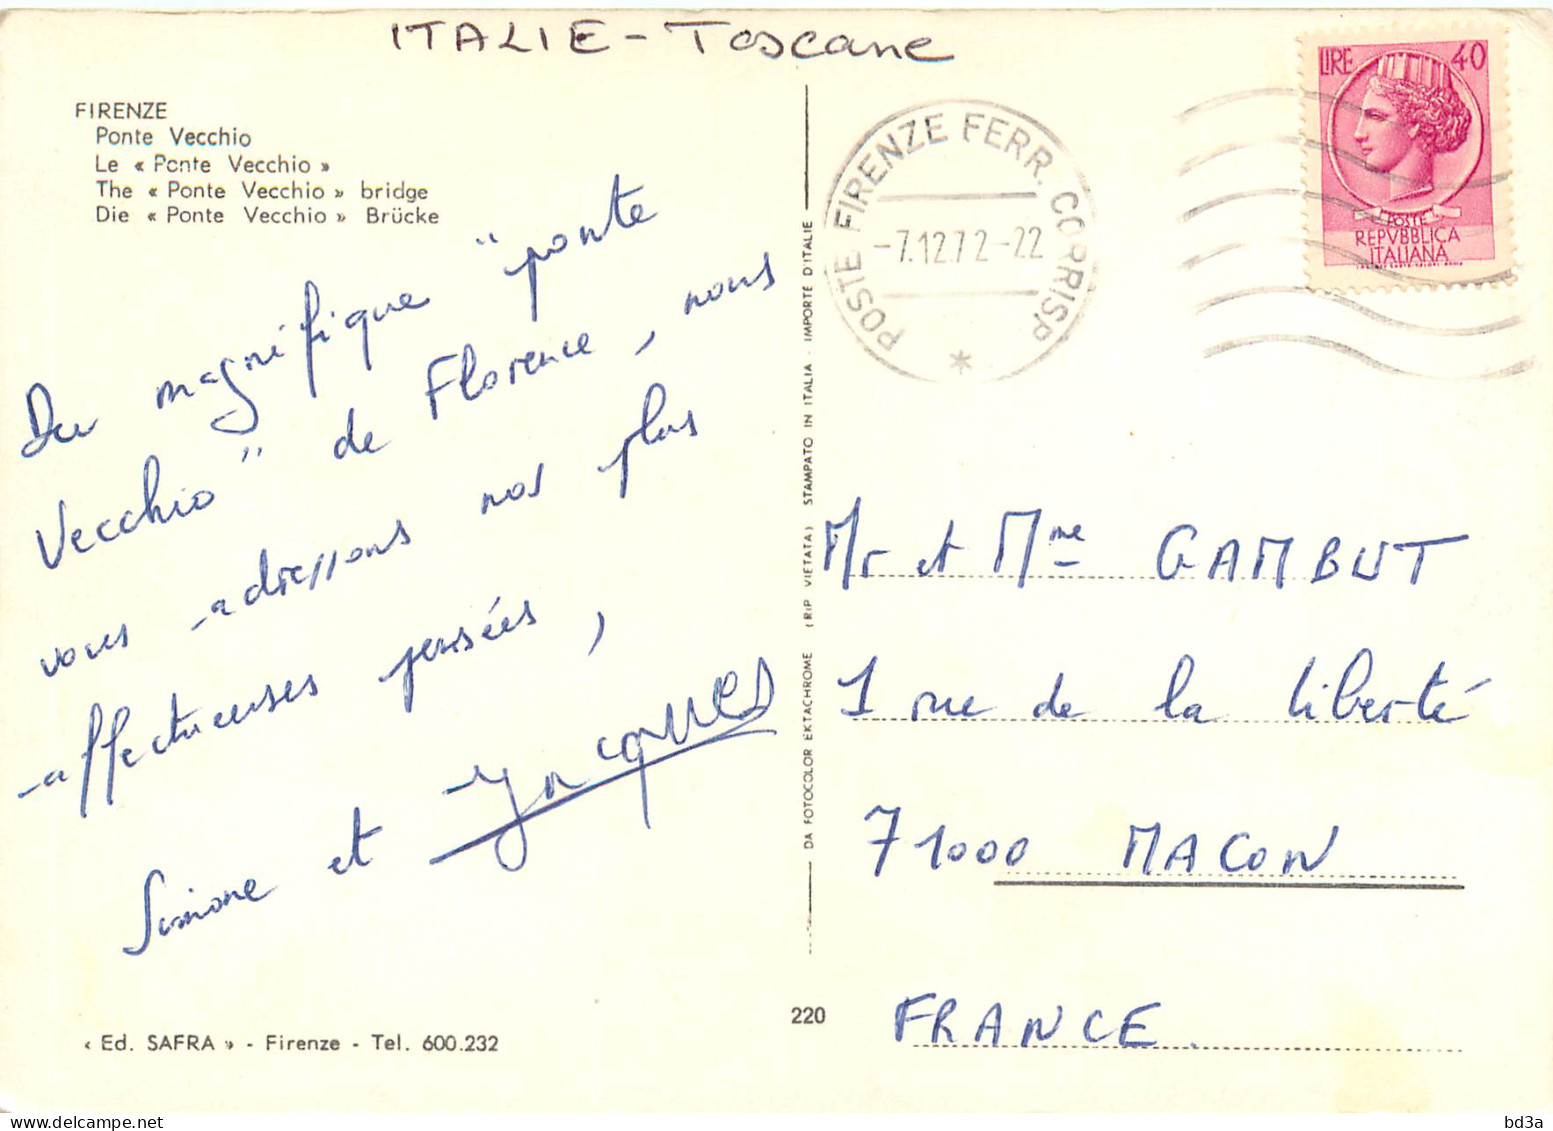 ITALIE - Toscane
FIRENZE
Ponte Vecchio
Le « Ponte Vecchio »
The « Ponte Vecchio » bridge
Die « Ponte Vecchio » Brücke
Du magnifique "ponte
Vecchio" de Florence, nous
vous adressons nos plus
affectueuses pensées,
Simone et Jacques
« Ed. SAFRA » - Firenze - Tel. 600.232
DA FOTOCOLOR EKTACHROME (RIP VIETATA) STAMPATO IN ITALIA - IMPORTE D'ITALIE
220
POSTE FIRENZE FERR. CORRISP.
-7.12.72-22
*
LIRE 40
POSTE
REPVBBLICA
ITALIANA
Mr et Mme GAMBUT
1 rue de la liberté
71000 MACON
FRANCE.
bd3a